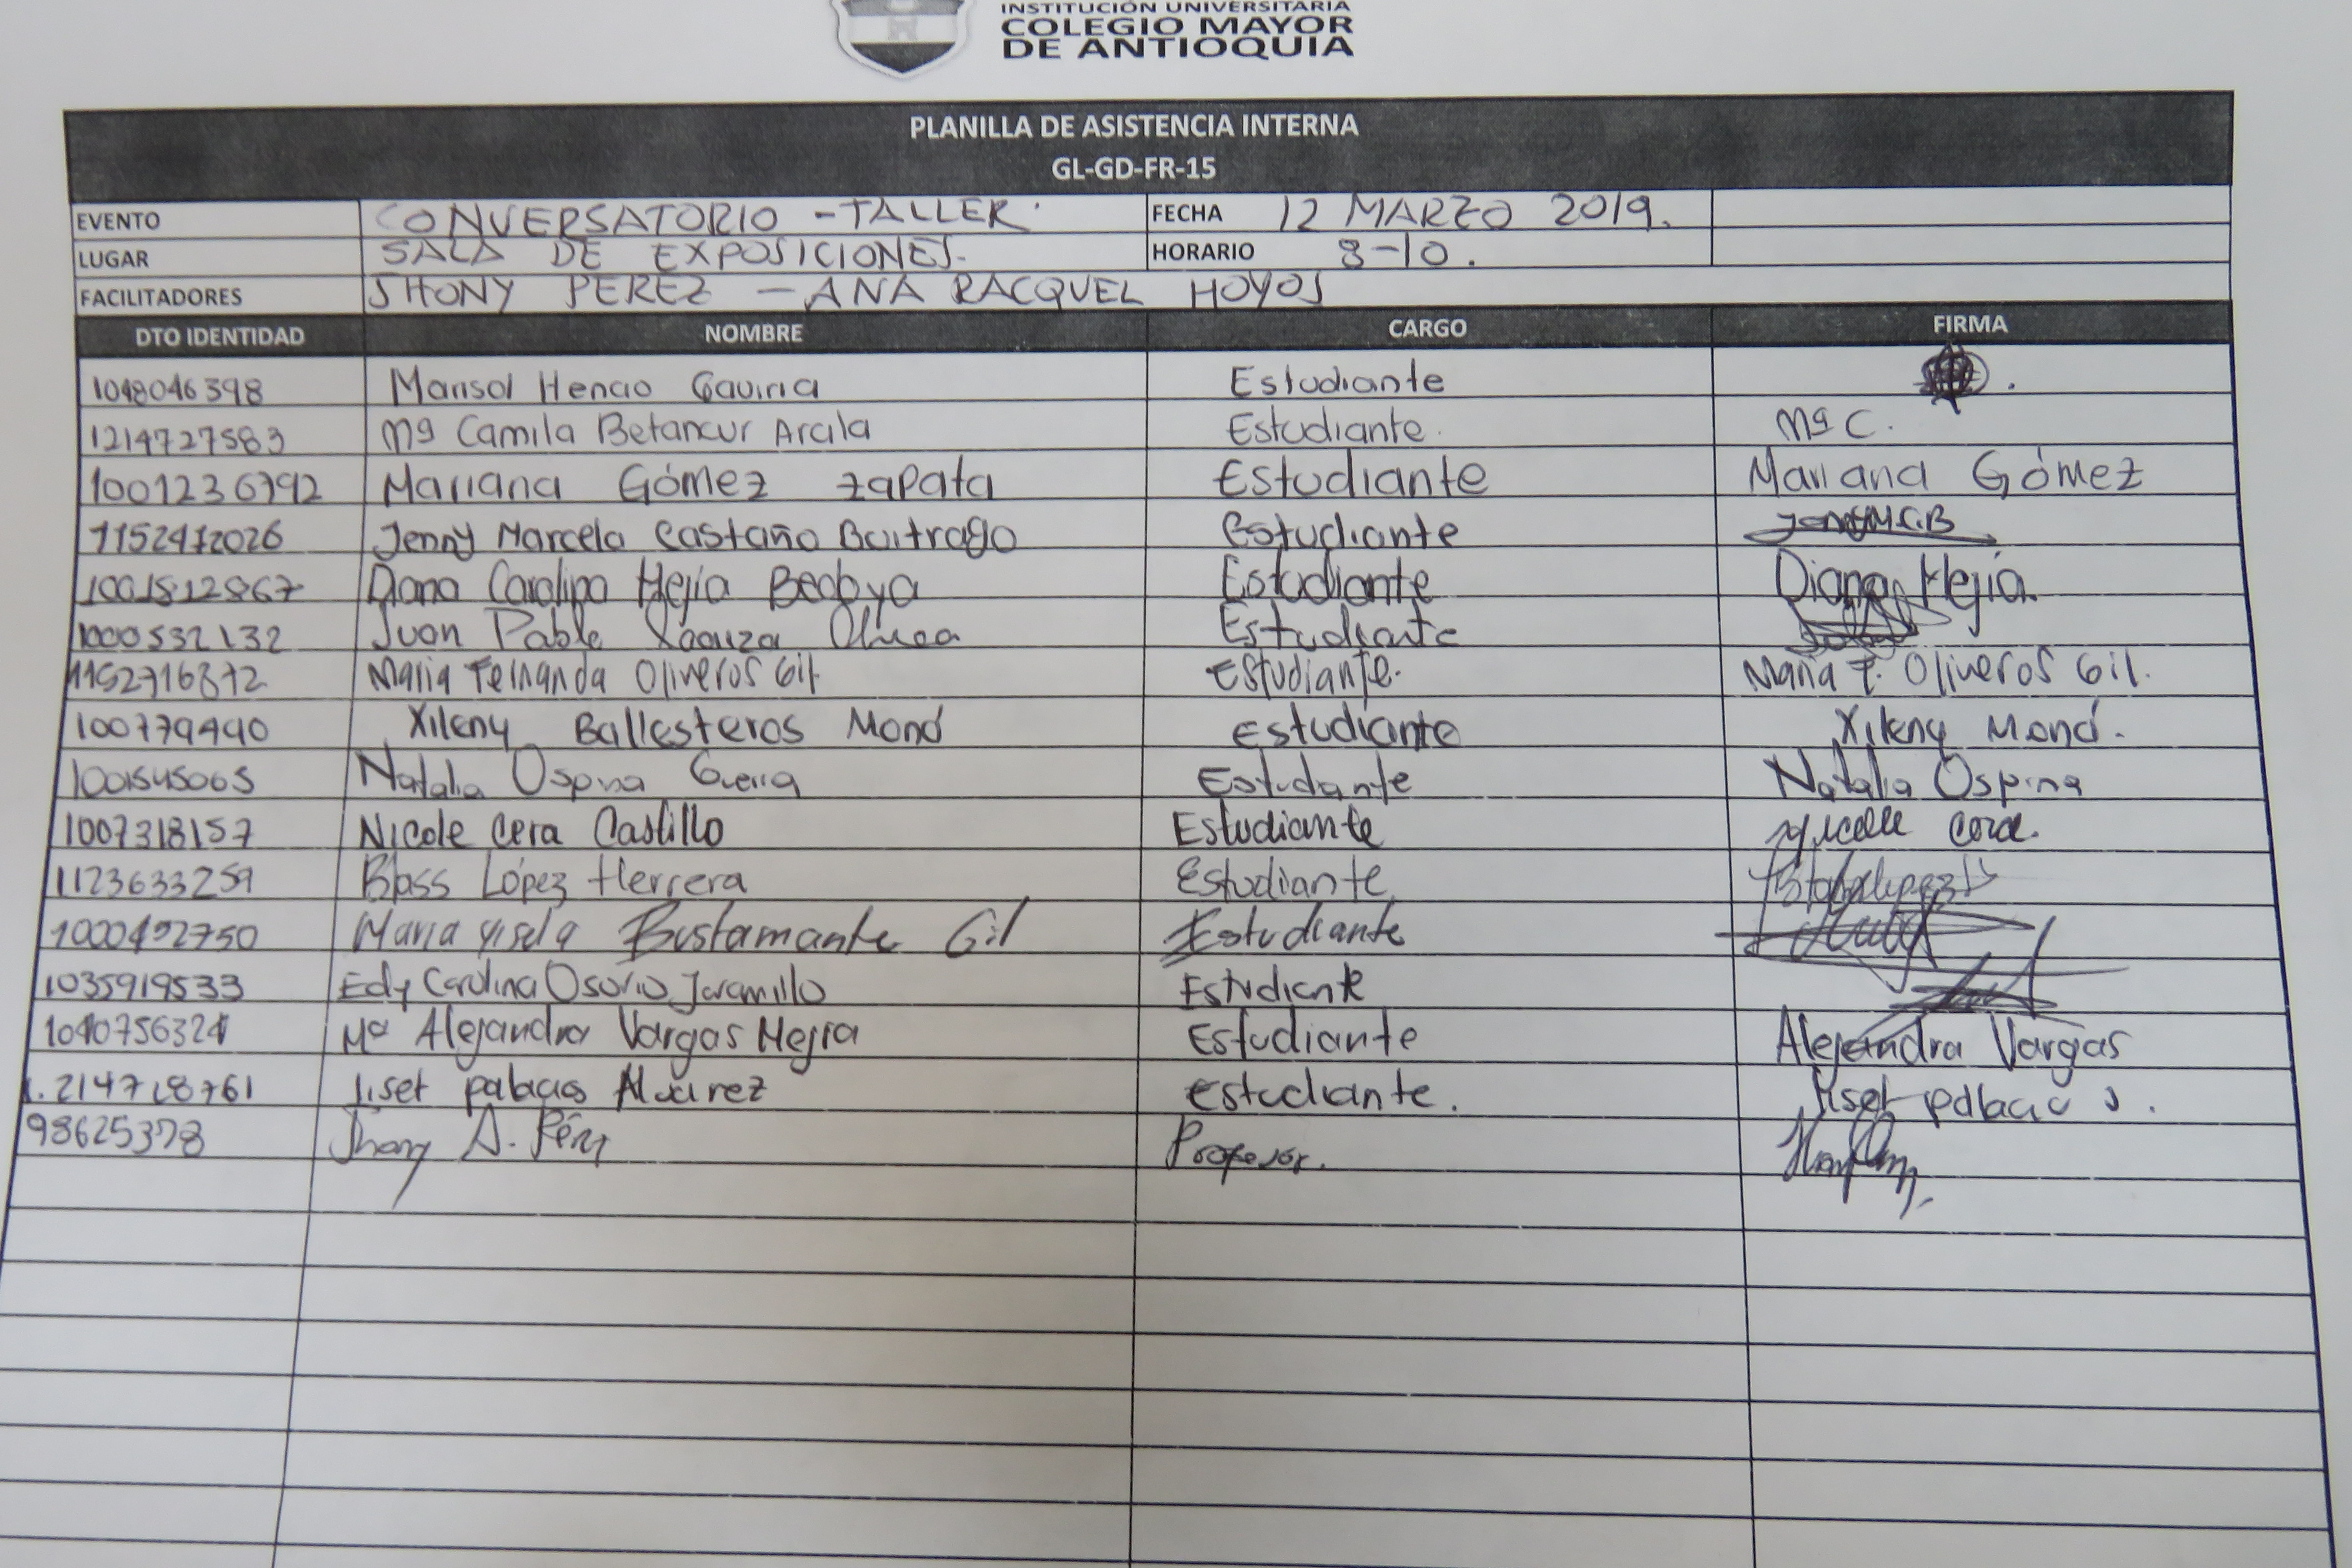 INSTITUCIÓN UNIVERSITARIA
COLEGIO MAYOR
DE ANTIOQUIA
PLANILLA DE ASISTENCIA INTERNA
GL-GD-FR-15
EVENTO CONVERSATORIO - TALLER. FECHA 12 MARZO 2019.
LUGAR SALA DE EXPOSICIONES. HORARIO 8-10.
FACILITADORES JHONY PEREZ - ANA RACQUEL HOYOS
DTO IDENTIDAD NOMBRE CARGO FIRMA
1048046398 Marisol Henao Gaviria Estudiante
1214727583 Mª Camila Betancur Arcila Estudiante. Mª C.
1001236792 Mariana Gómez zapata Estudiante Mariana Gómez
1152412026 Jenny Marcela Castaño Buitrago Estudiante
1001512867 Diana Carolina Mejía Bedoya Estudiante Diana Mejía.
1000532132 Juan Pablo Estudiante
1152716872 Maria Fernanda Oliveros Gil Estudiante. Maria F. Oliveros Gil.
100779490 Xileny Ballesteros Moná Estudiante Xileny Moná.
1001545065 Natalia Ospina Guerra Estudiante Natalia Ospina
1007318157 Nicole Cera Castillo Estudiante Nicolle Cera.
1123633259 Blass López Herrera Estudiante
1000492750 Maria Gisela Bustamante Gil Estudiante
1035919533 Edy Carolina Osorio Jaramillo Estudiante
1040756324 Mª Alejandra Vargas Mejia Estudiante Alejandra Vargas
1.214728761 Liset palacios Alvarez estudiante. liset palacios.
98625378 Jhony A. Pérez Profesor.